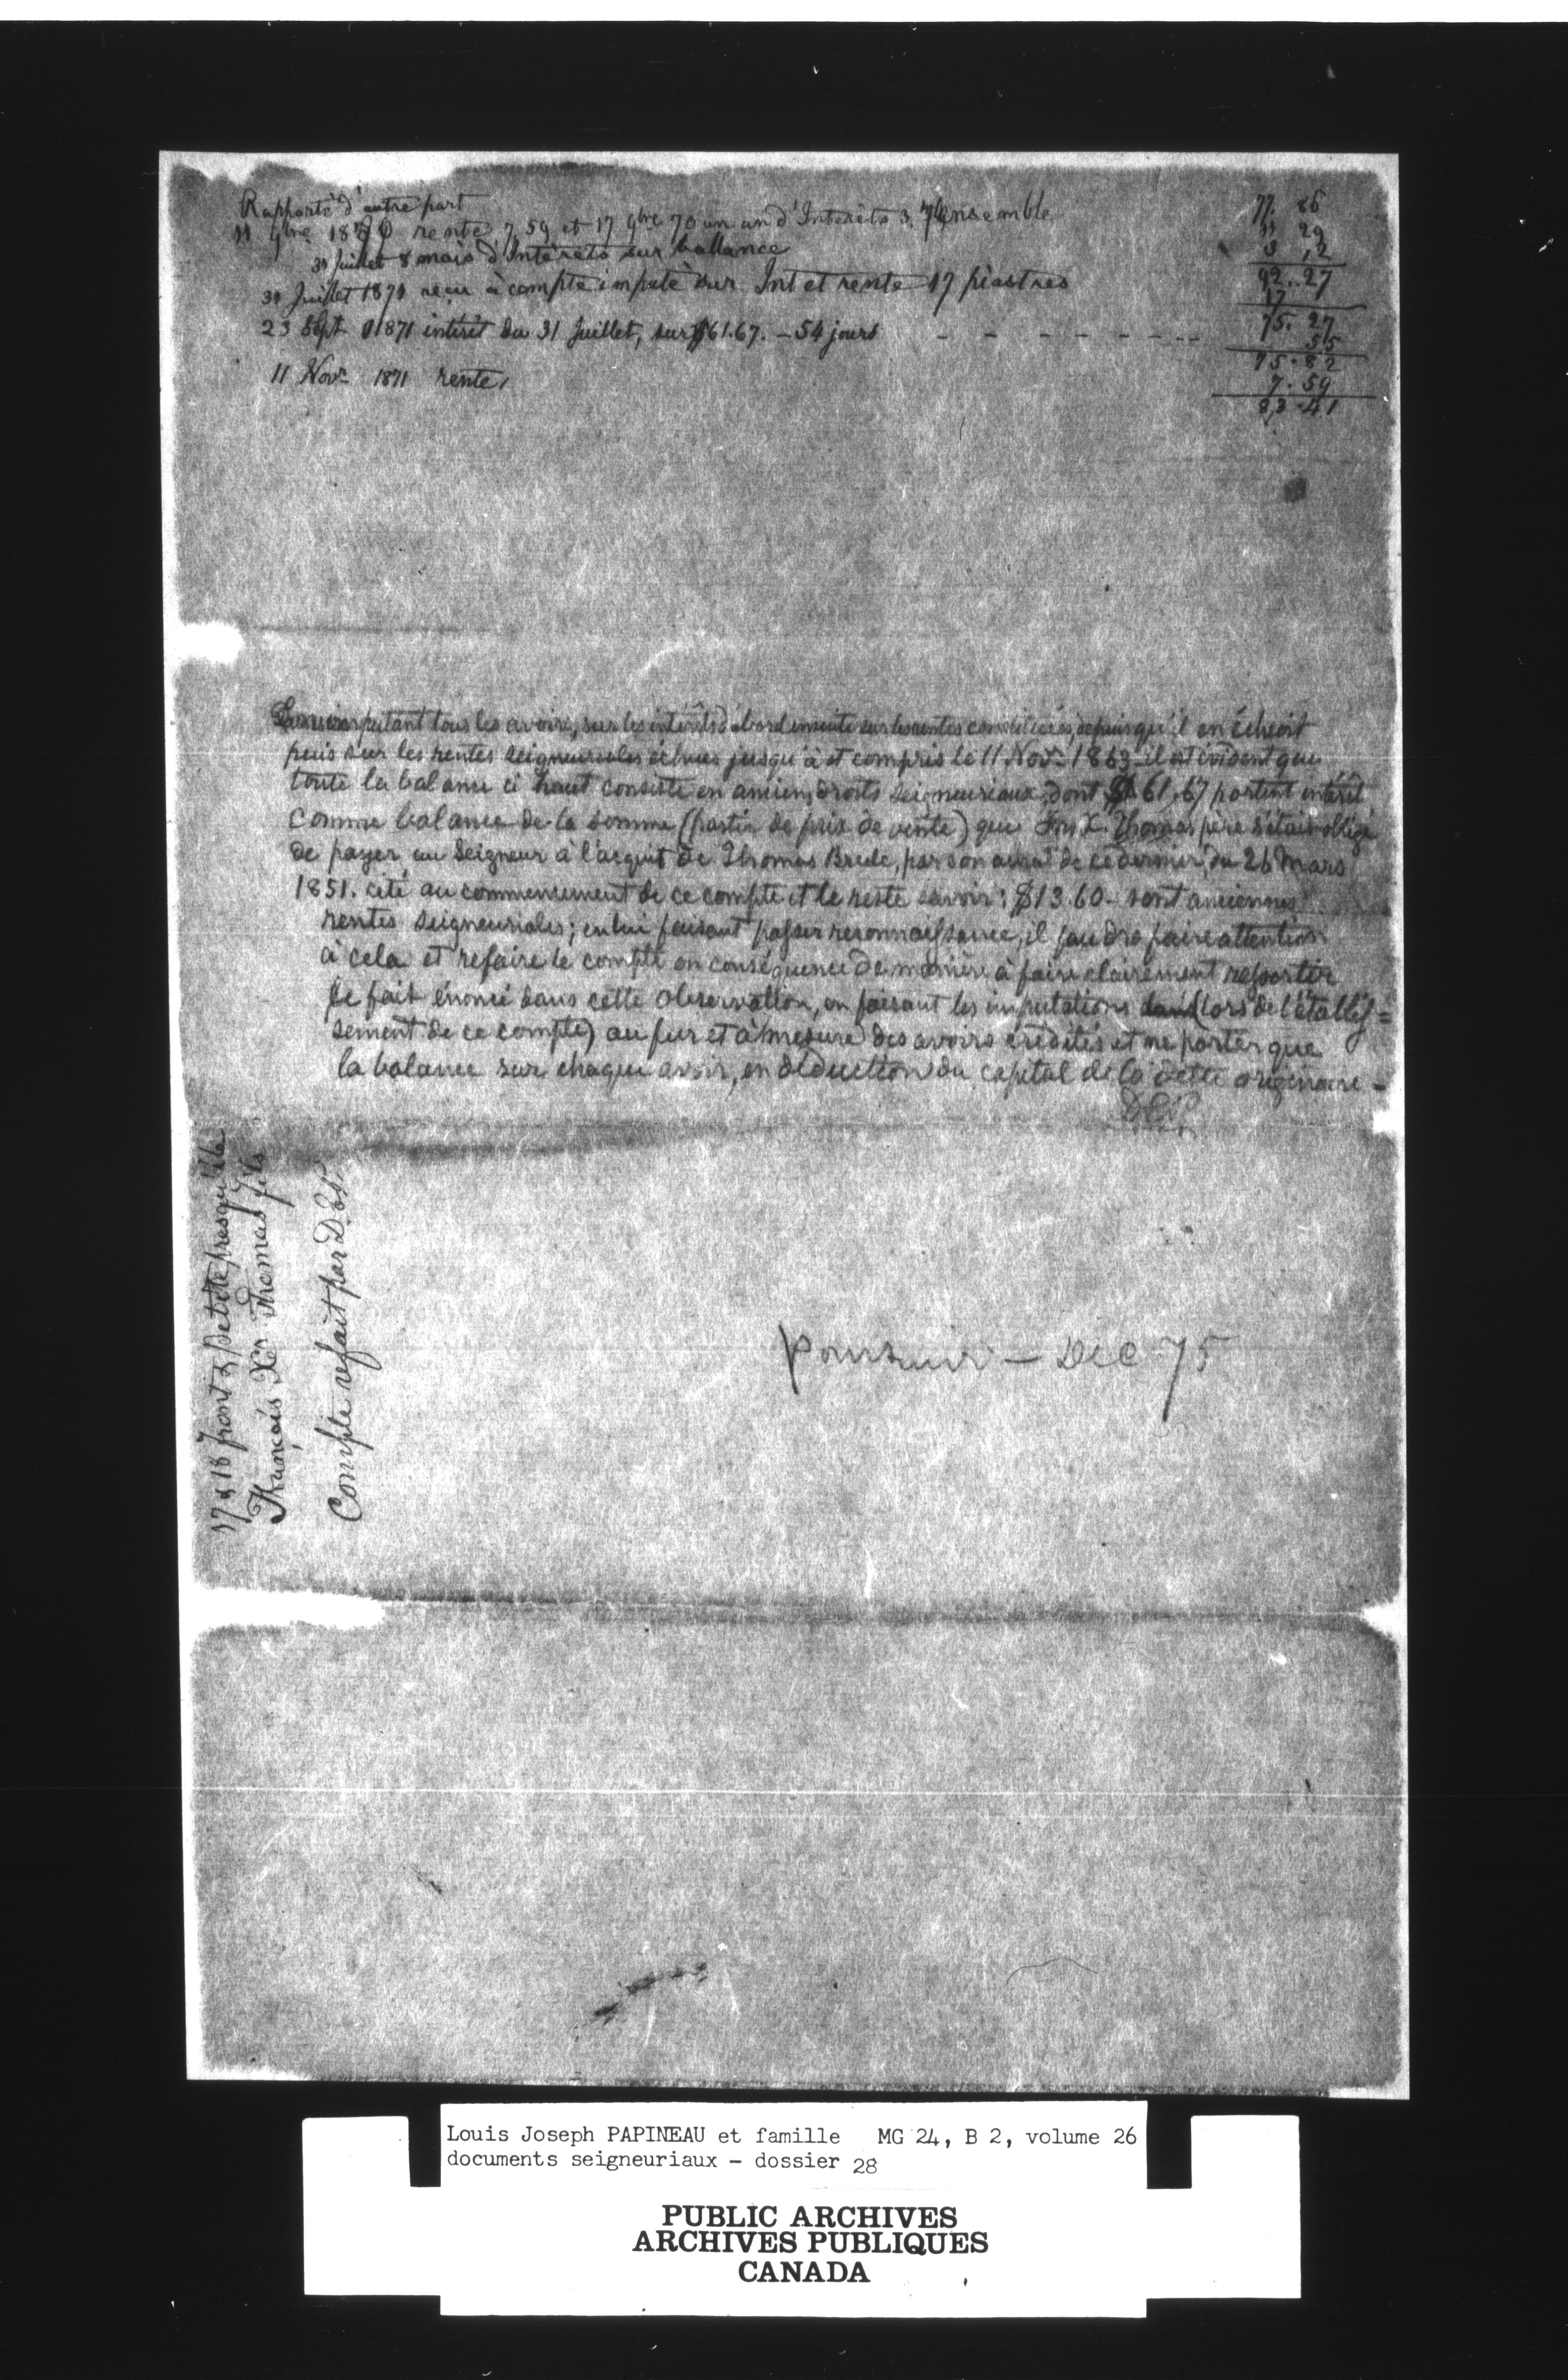 Rapporté d'autre part 77. 86
11 9bre 1870 rente 7 59 et 17 9bre 70 un an d'Intérêts 3.70 ensemble 11 29
31 Juillet 8 mois d'Intérêts sur ballance 3 ,2
92..27
31 Juillet 1871 reçu à compte imputé sur Int et rente 17 piastres 17
75. 27
23 Sept 1871 intérêt du 31 Juillet, sur $61.67. – 54 jours - - - - - - - - 55
75.82
11 Novr 1871 rente, 7.59
83.41
En imputant tous les avoirs, sur les intérêts d'abord ensuite sur les rentes constituées, depuis qu'il en échoit
puis sur les rentes seigneuriales échues jusqu'à et compris le 11 Novr 1863 il est évident que
toute la balance ci haut consiste en anciens droits seigneuriaux, dont $61,67 portent intérêt
comme balance de la somme (partie de prix de vente) que Frs X. Thomas père s'était obligé
de payer au Seigneur à l'acquit de Thomas Brede, par son achat de ce dernier, du 26 Mars
1851. cité au commencement de ce compte et le reste savoir: $13.60 – sont anciennes
rentes seigneuriales; en lui faisant passer reconnaissance, il faudra faire attention
à cela et refaire le compte en conséquence de manière à faire clairement ressortir
le fait énoncé dans cette observation, en faisant les imputations (lors de l'établis=
sement de ce compte) au fur et à mesure des avoirs crédités et ne porter que
la balance sur chaque avoir, en déduction du capital de la dette originaire –
17 & 18 front & Petite presqu'ile
François Xer Thomas fils
Compte refait par D.
Poursuivi — Dec 75
Louis Joseph PAPINEAU et famille MG 24, B 2, volume 26
documents seigneuriaux - dossier 28
PUBLIC ARCHIVES
ARCHIVES PUBLIQUES
CANADA